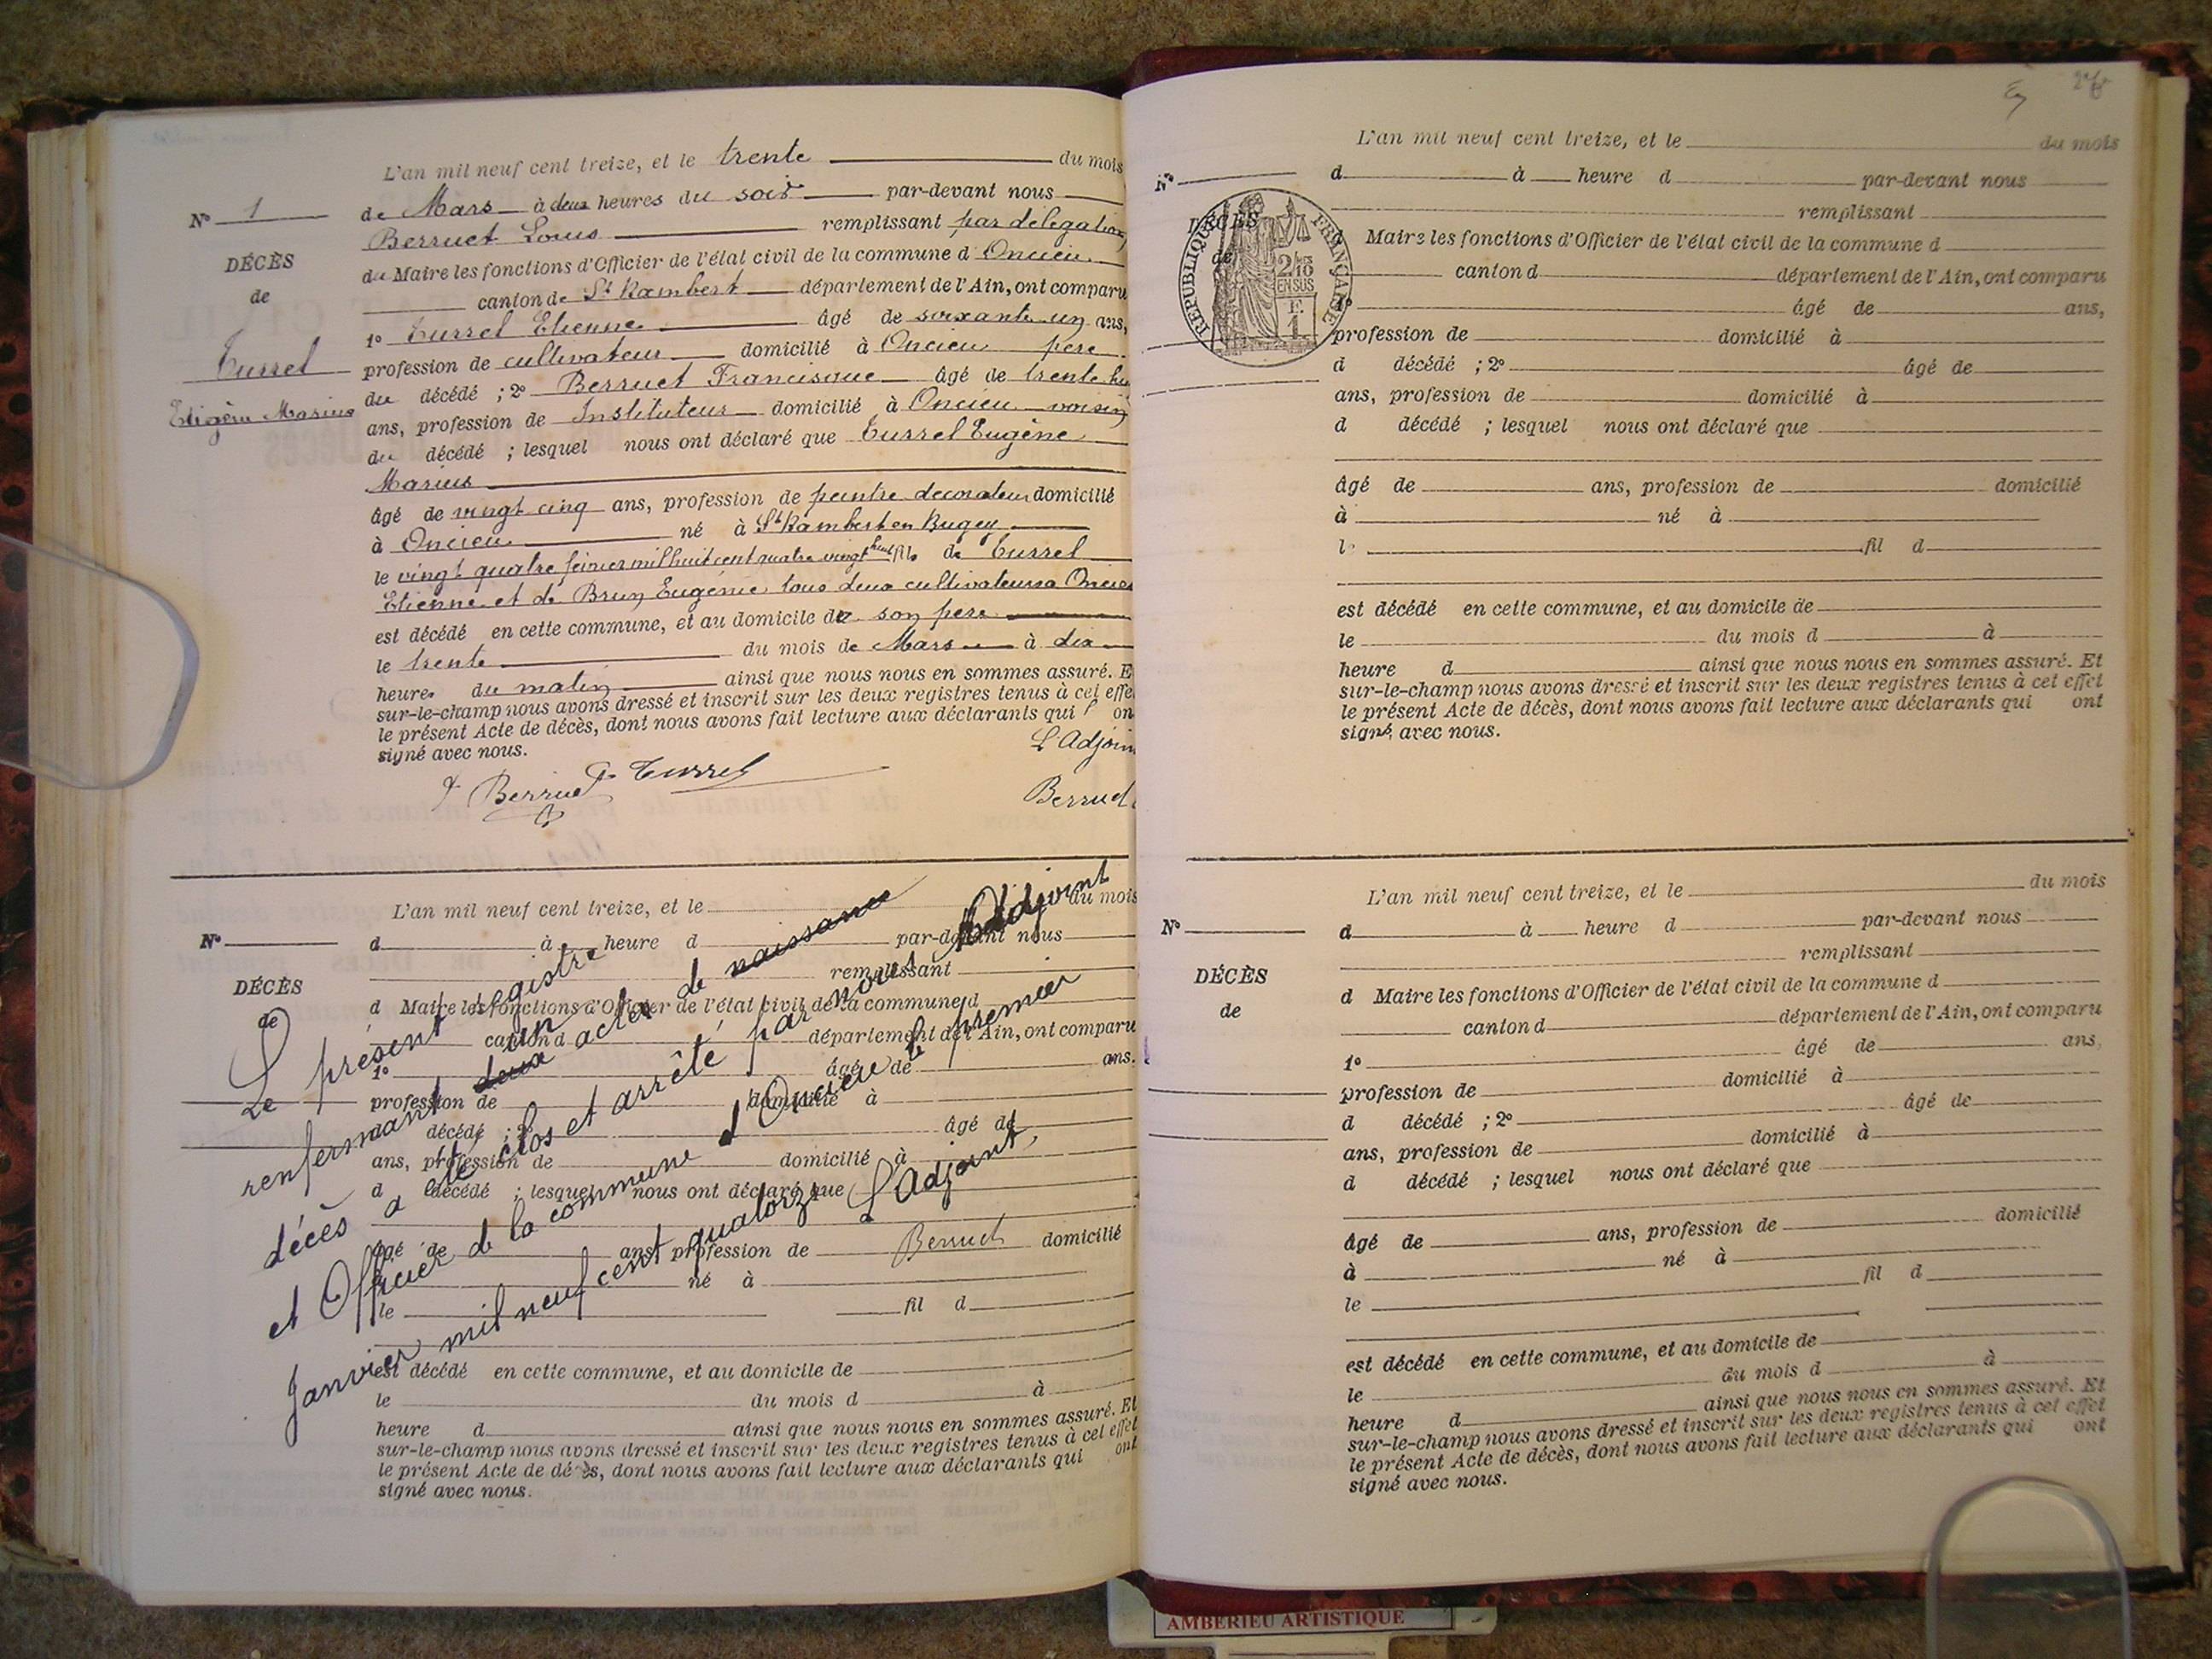 L'an mil neuf cent treize, et le trente du mois
de Mars à deux heures du soir par-devant nous
Berruet Louis remplissant par délégation
du Maire les fonctions d'Officier de l'état civil de la commune d'Oncieu
canton de St Rambert département de l'Ain, ont comparu
1º Turrel Etienne âgé de soixante un ans,
profession de cultivateur domicilié à Oncieu père
du décédé ; 2º Berruet Francisque âgé de trente
ans, profession de Instituteur domicilié à Oncieu voisin
du décédé ; lesquel nous ont déclaré que Turrel Eugène
Marius
âgé de vingt cinq ans, profession de peintre decorateur domicilié
à Oncieu né à St Rambert en Bugey
le vingt quatre février mil huit cent quatre vingt huit fils de Turrel
Etienne et de Brun Eugénie tous deux cultivateurs a Oncieu
est décédé en cette commune, et au domicile de son père
le trente du mois de Mars à dix
heures du matin ainsi que nous nous en sommes assuré. E
sur-le-champ nous avons dressé et inscrit sur les deux registres tenus à cet effe
le présent Acte de décès, dont nous avons fait lecture aux déclarants qui on
signé avec nous.
L'Adjoin
Berruet Turrel Berruet
Nº 1
DÉCÈS
de
Turrel
Marius
L'an mil neuf cent treize, et le du mois
Nº
d à heure d par-devant nous
remplissant
DÉCÈS
de
d Maire les fonctions d'Officier de l'état civil de la commune d
canton d département de l'Ain, ont comparu
1º âgé de ans.
profession de domicilié à
d décédé ; 2º âgé de
ans, profession de domicilié à
d décédé ; lesquel nous ont déclaré que
âgé de ans, profession de domicilié
à né à
le fil d
est décédé en cette commune, et au domicile de
le du mois d à
heure d ainsi que nous nous en sommes assuré. Et
sur-le-champ nous avons dressé et inscrit sur les deux registres tenus à cet effet
le présent Acte de décès, dont nous avons fait lecture aux déclarants qui ont
signé avec nous.
Le présent registre
renfermant deux un actes de naissance
décès a été clos et arrêté par nous Adjoint
et Officier de la commune d'Oncieu le premier
Janvier mil neuf cent quatorze L'Adjoint,
Berruet
L'an mil neuf cent treize, et le du mois
Nº
d à heure d par-devant nous
remplissant
DÉCÈS
de
RÉPUBLIQUE FRANÇAISE
2/10 EN SUS
F. 1
Maire les fonctions d'Officier de l'état civil de la commune d
canton d département de l'Ain, ont comparu
1º âgé de ans,
profession de domicilié à
d décédé ; 2º âgé de
ans, profession de domicilié à
d décédé ; lesquel nous ont déclaré que
âgé de ans, profession de domicilié
à né à
le fil d
est décédé en cette commune, et au domicile de
le du mois d à
heure d ainsi que nous nous en sommes assuré. Et
sur-le-champ nous avons dressé et inscrit sur les deux registres tenus à cet effet
le présent Acte de décès, dont nous avons fait lecture aux déclarants qui ont
signé avec nous.
L'an mil neuf cent treize, et le du mois
Nº
d à heure d par-devant nous
remplissant
DÉCÈS
de
d Maire les fonctions d'Officier de l'état civil de la commune d
canton d département de l'Ain, ont comparu
1º âgé de ans,
profession de domicilié à
d décédé ; 2º âgé de
ans, profession de domicilié à
d décédé ; lesquel nous ont déclaré que
âgé de ans, profession de domicilié
à né à
le fil d
est décédé en cette commune, et au domicile de
le du mois d à
heure d ainsi que nous nous en sommes assuré. Et
sur-le-champ nous avons dressé et inscrit sur les deux registres tenus à cet effet
le présent Acte de décès, dont nous avons fait lecture aux déclarants qui ont
signé avec nous.
AMBERIEU ARTISTIQUE